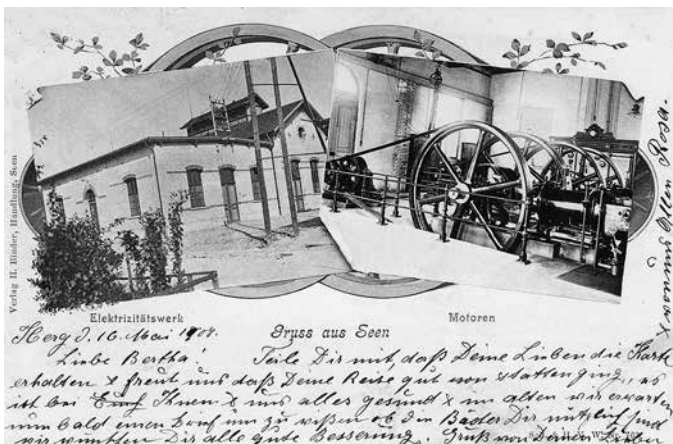 Verlag H. Binder, Handlung, Seen
Elektrizitätswerk
Motoren
Gruss aus Seen
d. 16. Mai 1908.
Liebe Bertha! Teile Dir mit, daß Deine Lieben die Karte
erhalten & freut uns daß Deine Reise gut von statten ging, es
ist bei Ihnen & uns alles gesund & im alten wir erwarten
nun bald einen Brief um zu wißen ob die Bäder Dir nützlich sind
wir wünschen Dir alle gute Besserung. Gruß von Deinen Lieben
& von uns Allen Rosa.